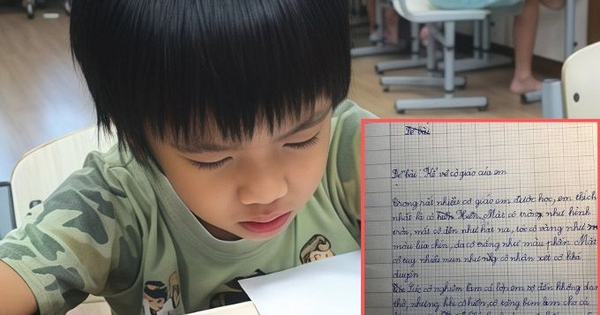 Đề bài
Đề bài: Kể về cô giáo của em
Trong rất nhiều cô giáo em được học, em thích
nhất là cô Hiền. Mắt cô tròn như hình
trời, mắt cô đen như hạt na, tóc cô vàng như
màu lúa chín, da cô trắng như màu phấn. Mặt
cô tuy nhiều mụn như cô nhận xét cô khá
duyên
cô nghiêm lắm cả lớp em sợ đến không dám
thở, nhưng khi cô hiền, cô tặng bim bim cho cả